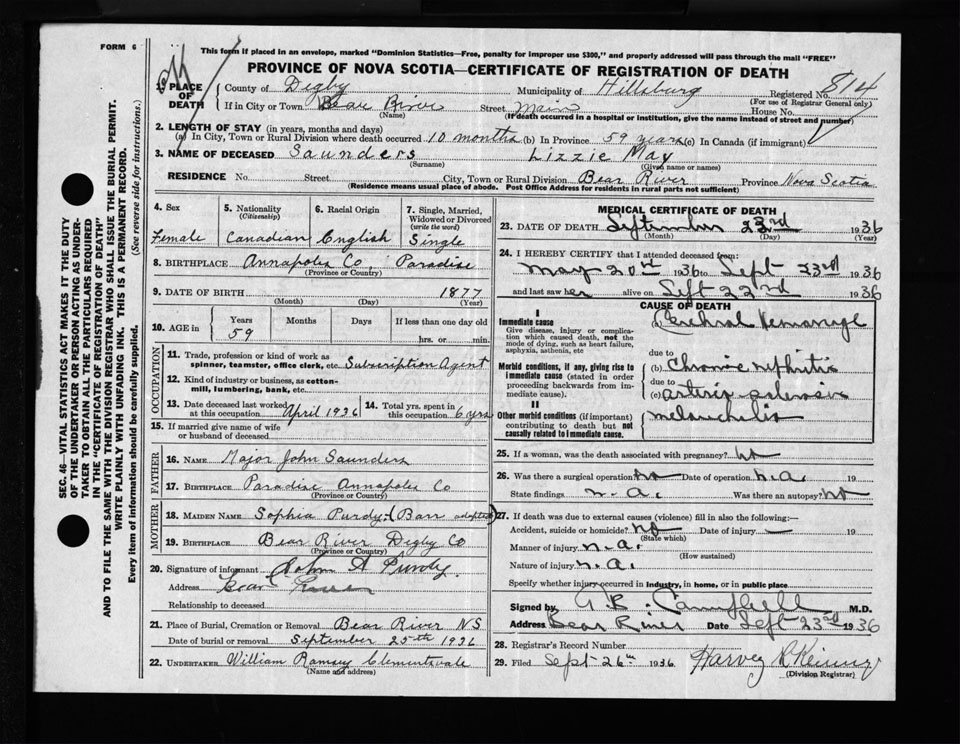 FORM 6
This form if placed in an envelope, marked "Dominion Statistics—Free, penalty for improper use $300," and properly addressed will pass through the mail "FREE"
PROVINCE OF NOVA SCOTIA—CERTIFICATE OF REGISTRATION OF DEATH
1. PLACE OF DEATH
County of Digby Municipality of Hillsburg Registered No. 814
(For use of Registrar General only)
If in City or Town Bear River Street Main House No.
(Name) (If death occurred in a hospital or institution, give the name instead of street and number)
2. LENGTH OF STAY (in years, months and days)
(a) In City, Town or Rural Division where death occurred 10 months (b) In Province 59 years (c) In Canada (if immigrant)
3. NAME OF DECEASED Saunders Lizzie May
(Surname) (Given name or names)
RESIDENCE No. Street City, Town or Rural Division Bear River Province Nova Scotia
(Residence means usual place of abode. Post Office Address for residents in rural parts not sufficient)
SEC. 46—VITAL STATISTICS ACT MAKES IT THE DUTY
OF THE UNDERTAKER OR PERSON ACTING AS UNDER-
TAKER TO OBTAIN ALL THE PARTICULARS REQUIRED
IN THE "CERTIFICATE OF REGISTRATION OF DEATH"
AND TO FILE THE SAME WITH THE DIVISION REGISTRAR WHO SHALL ISSUE THE BURIAL PERMIT.
WRITE PLAINLY WITH UNFADING INK. THIS IS A PERMANENT RECORD.
Every item of information should be carefully supplied. (See reverse side for instructions.)
4. Sex
Female
5. Nationality
(Citizenship)
Canadian
6. Racial Origin
English
7. Single, Married,
Widowed or Divorced
(write the word)
Single
8. BIRTHPLACE Annapolis Co, Paradise
(Province or Country)
9. DATE OF BIRTH 1877
(Month) (Day) (Year)
10. AGE in Years Months Days If less than one day old
59 hrs. or min.
OCCUPATION
11. Trade, profession or kind of work as
spinner, teamster, office clerk, etc. Subscription Agent
12. Kind of industry or business, as cotton-
mill, lumbering, bank, etc.
13. Date deceased last worked
at this occupation April 1936
14. Total yrs. spent in
this occupation 6 yrs
15. If married give name of wife
or husband of deceased
FATHER
16. NAME Major John Saunders
17. BIRTHPLACE Paradise Annapolis Co
(Province or Country)
MOTHER
18. MAIDEN NAME Sophia Purdy (Barr adopted)
19. BIRTHPLACE Bear River Digby Co
(Province or Country)
20. Signature of informant John A Purdy
Address Bear River
Relationship to deceased
21. Place of Burial, Cremation or Removal Bear River NS
Date of burial or removal September 25th 1936
22. UNDERTAKER William Ramsey Clementsvale
(Name and address)
MEDICAL CERTIFICATE OF DEATH
23. DATE OF DEATH September 23rd 1936
(Month) (Day) (Year)
24. I HEREBY CERTIFY that I attended deceased from:
May 20th 1936 to Sept 23rd 1936
and last saw her alive on Sept 22nd 1936
CAUSE OF DEATH
I
Immediate cause
Give disease, injury or complica-
tion which caused death, not the
mode of dying, such as heart failure,
asphyxia, asthenia, etc
(a) Cerebral Hemorrage
due to
Morbid conditions, if any, giving rise to
immediate cause (stated in order
proceeding backwards from im-
mediate cause).
(b) Chronic nephritis
due to
(c) arterio-sclerosis
II
Other morbid conditions (if important)
contributing to death but not
causally related to immediate cause.
melancholia
25. If a woman, was the death associated with pregnancy? no
26. Was there a surgical operation? no Date of operation n.a. 19
State findings n.a. Was there an autopsy? no
27. If death was due to external causes (violence) fill in also the following:—
Accident, suicide or homicide? no Date of injury — 19
(State which)
Manner of injury n.a.
(How sustained)
Nature of injury n.a.
Specify whether injury occurred in industry, in home, or in public place
Signed by G. B. Campbell M.D.
Address Bear River Date Sept 23rd 1936
28. Registrar's Record Number
29. Filed Sept 26th 1936 Harvey
(Division Registrar)